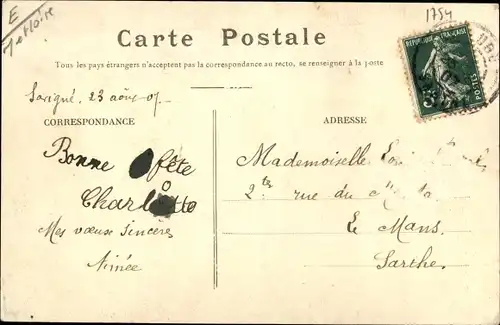 E
Met Loire
1754
Carte Postale
RÉPUBLIQUE FRANÇAISE
POSTES
Tous les pays étrangers n'acceptent pas la correspondance au recto, se renseigner à la poste
Savigné, 23 août 07.
CORRESPONDANCE
ADRESSE
Bonne fête
Charlotte
Mes vœux sincères
Aimée
Mademoiselle
2ter rue du
Le Mans.
Sarthe.